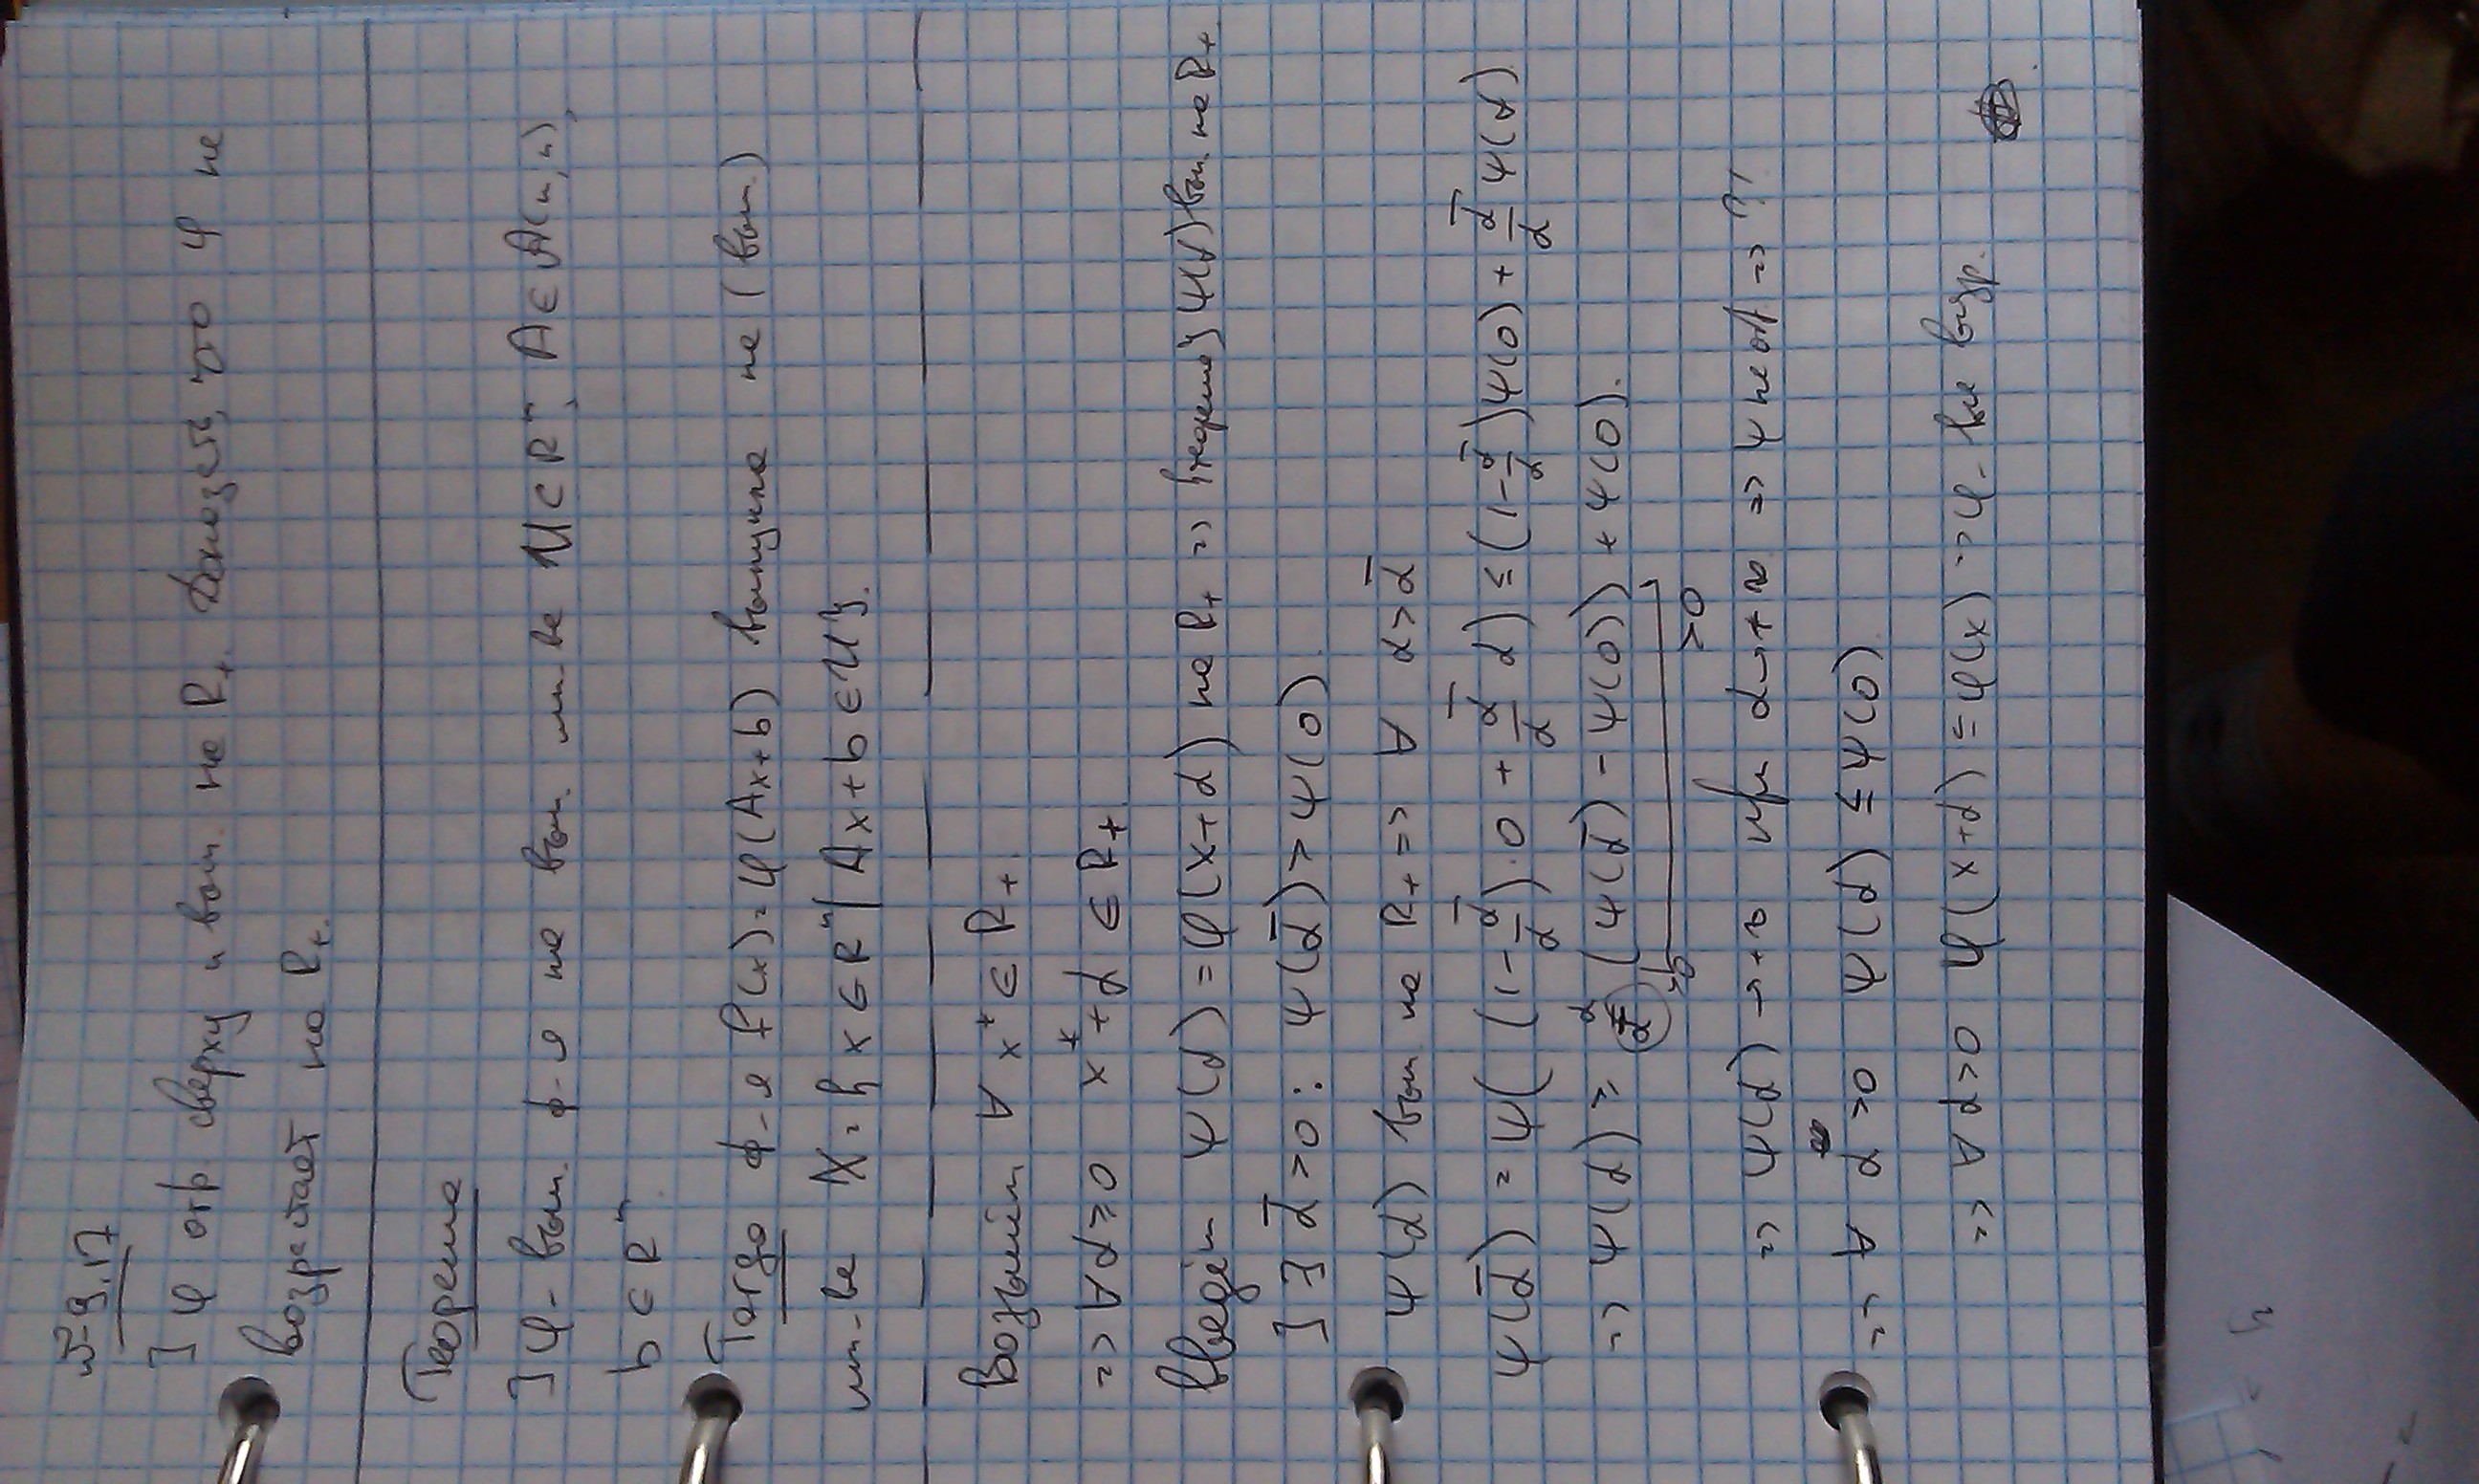 № 9.17
] φ огр. сверху и вып. на R₊. Доказать, что φ не
возрастает на R₊.
Теорема
] φ - вып. ф-я на вып. мн-ве U ⊂ Rᵐ, A ∈ A(m,n),
b ∈ Rᵐ.
Тогда ф-я f(x) = φ(Ax+b) выпукла на (вып.)
мн-ве X = {x ∈ Rⁿ | Ax+b ∈ U}.
Возьмём ∀ x* ∈ R₊.
=> ∀α≥0 x* + α ∈ R₊
Введём ψ(α) = φ(x+α) на R₊ => {теорема} ψ(α) вып. на R₊
] ∃ ᾱ >0: ψ(ᾱ) > ψ(0).
ψ(α) вып. на R₊ => ∀ α>ᾱ
ψ(ᾱ) = ψ((1-ᾱ/α)·0 + ᾱ/α α) ≤ (1-ᾱ/α)ψ(0) + ᾱ/α ψ(α)
=> ψ(α) ≥ α/ᾱ (ψ(ᾱ) - ψ(0)) + ψ(0).
>0 >0
=> ψ(α) → +∞ при α→+∞ => ψ не огр. => ?!
=> ∀ α >0 ψ(α) ≤ ψ(0)
=> ∀ α>0 φ(x+α) ≤ φ(x) => φ - не возр.